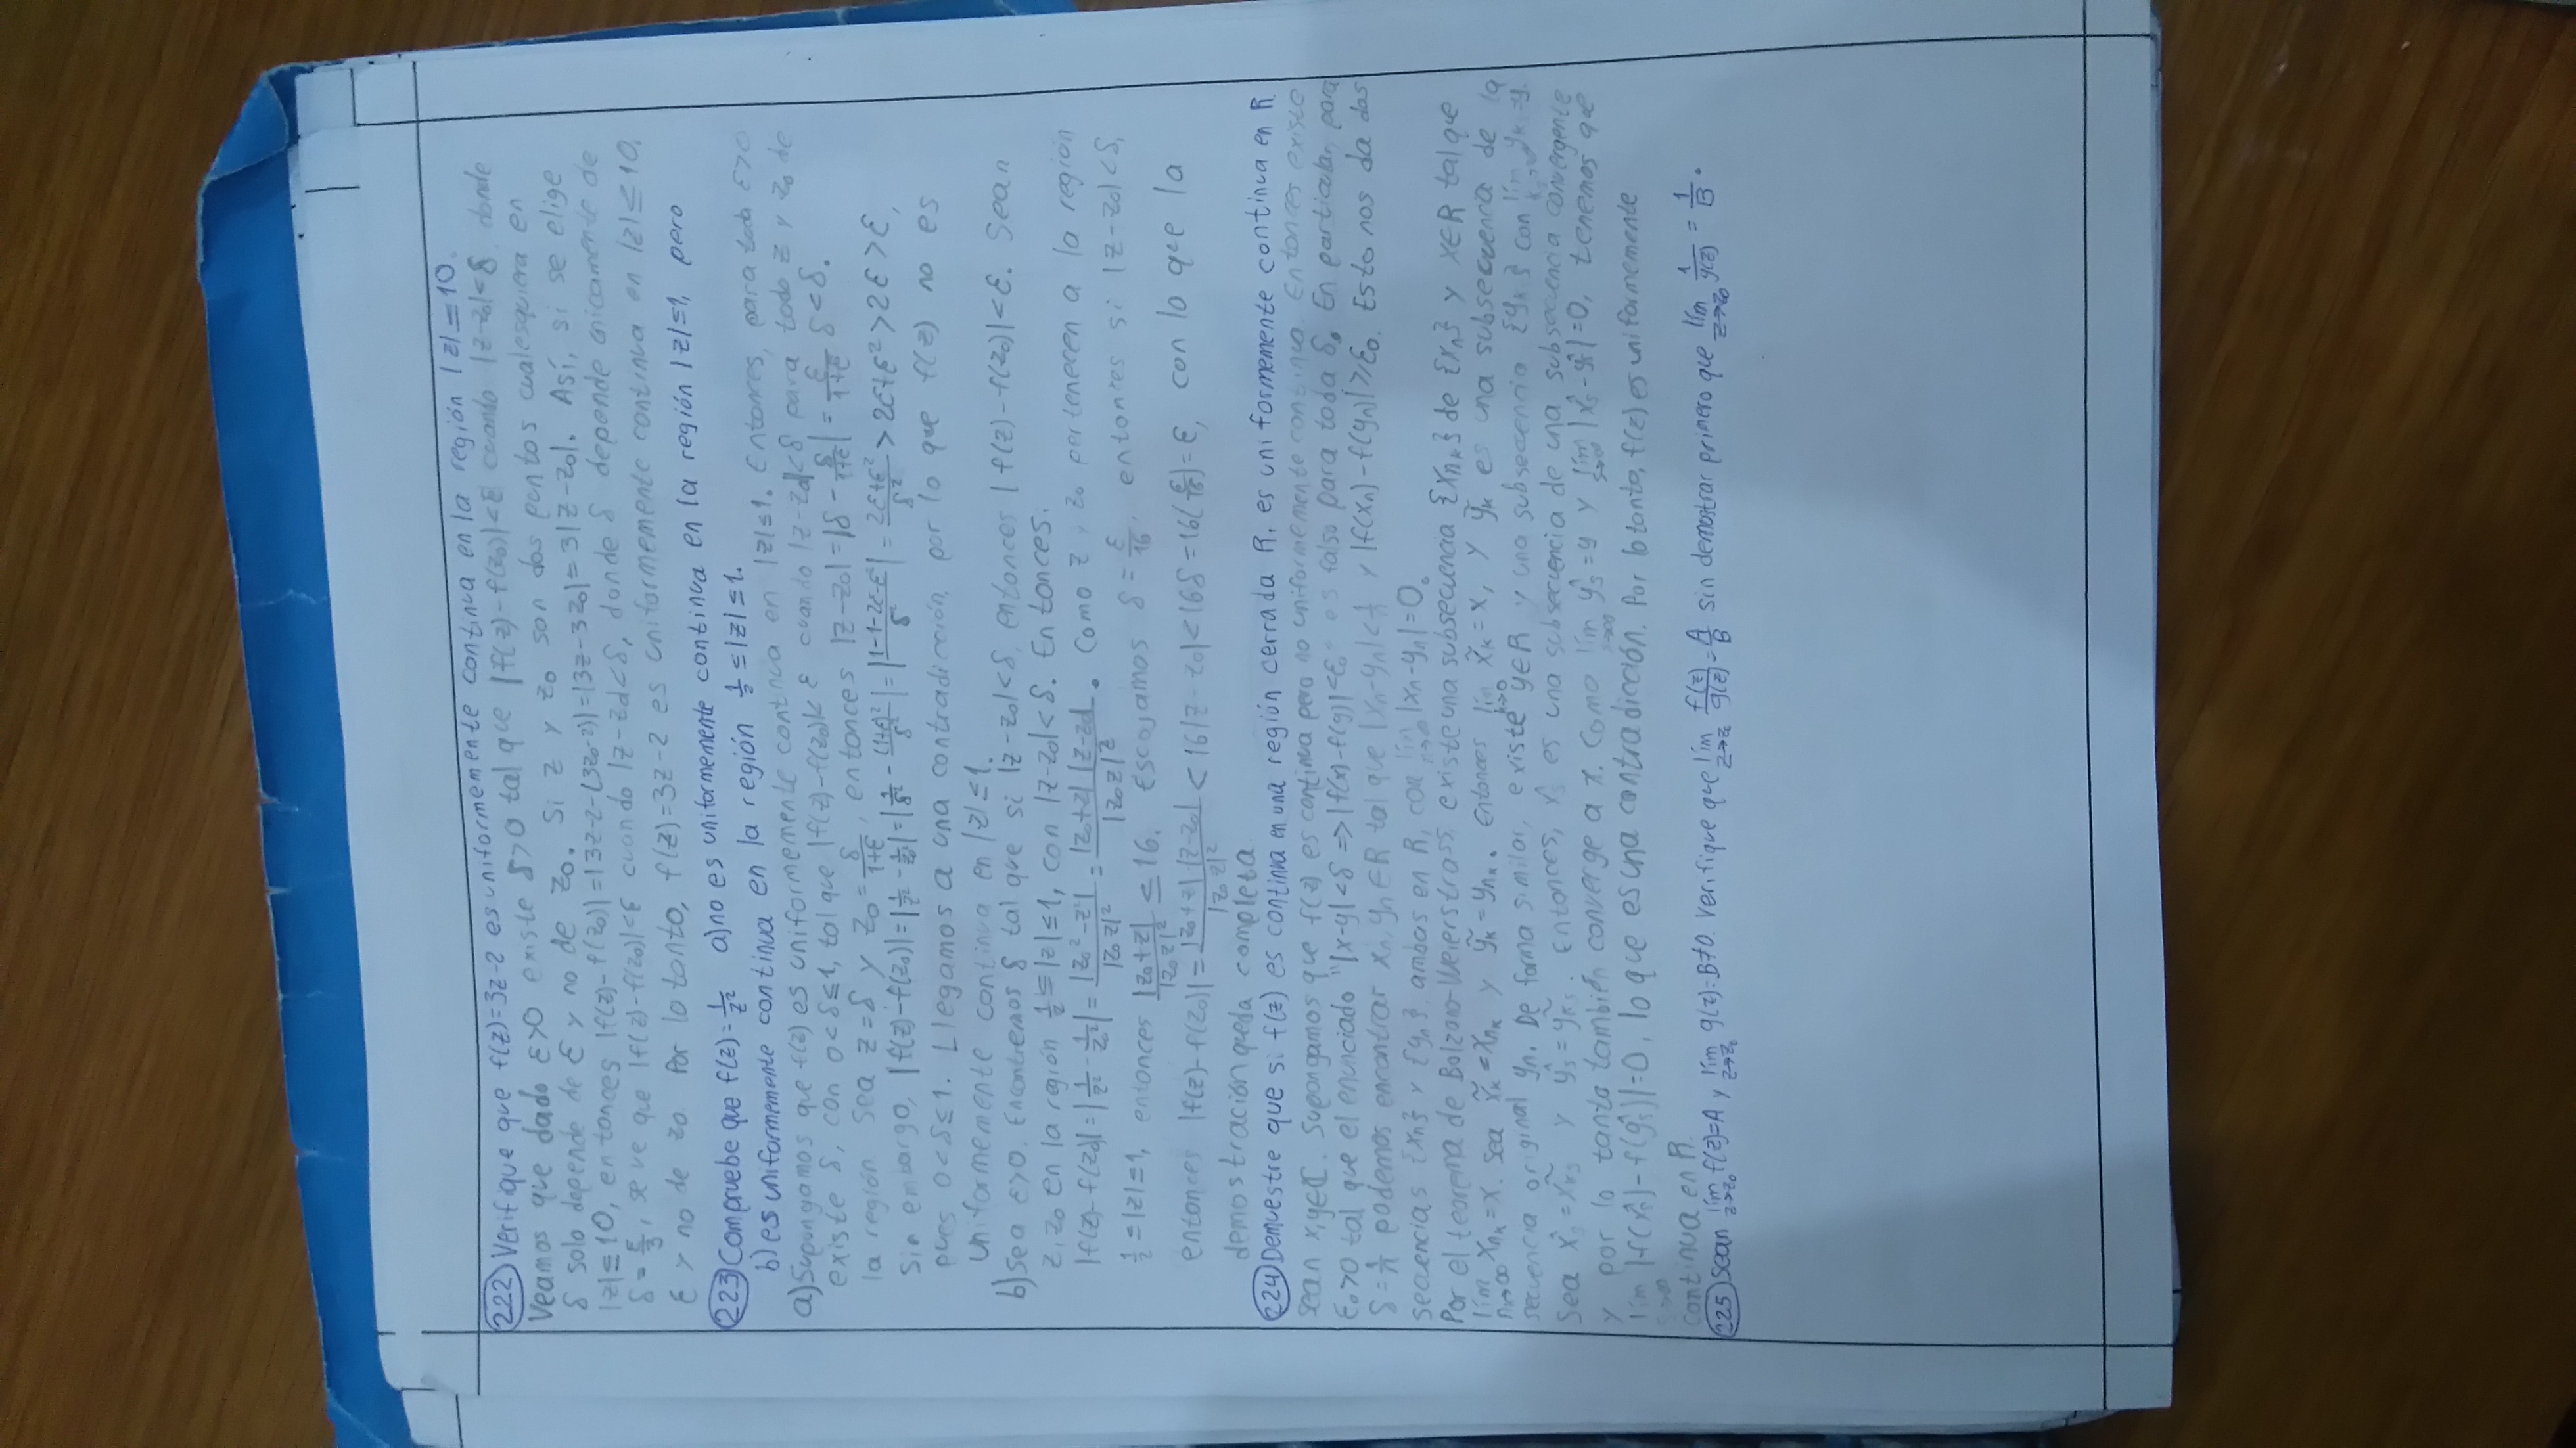 222) Verifique que f(z)=3z-2 es uniformemente continua en la región |z|=10.
Veamos que dado ε>0 existe δ>0 tal que |f(z)-f(z₀)|<ε cuando |z-z₀|<δ, donde
δ solo depende de ε y no de z₀. Si z y z₀ son dos puntos cualesquiera en
|z|≤10, entonces |f(z)-f(z₀)|=|3z-2-(3z₀-2)|=|3z-3z₀|=3|z-z₀|. Así, si se elige
δ=ε/3, se ve que |f(z)-f(z₀)|<ε cuando |z-z₀|<δ, donde δ depende únicamente de
ε y no de z₀. Por lo tanto, f(z)=3z-2 es uniformemente continua en |z|≤10.
223) Compruebe que f(z)=1/z² a) no es uniformemente continua en la región |z|≤1, pero
b) es uniformemente continua en la región 1/2≤|z|≤1.
a) Supongamos que f(z) es uniformemente continua en |z|≤1. Entonces, para toda ε>0
existe δ, con 0<δ≤1, tal que |f(z)-f(z₀)|<ε cuando |z-z₀|<δ para todo z y z₀ de
la región. Sea z=δ y z₀=δ/(1+ε), entonces |z-z₀|=|δ-δ/(1+ε)|=ε/(1+ε) δ<δ.
Sin embargo, |f(z)-f(z₀)|=|1/z²-1/z₀²|=|1/δ²-(1+ε)²/δ²|=|(1-1-2ε-ε²)/δ²|=(2ε+ε²)/δ²>2ε+ε²>2ε>ε,
pues 0<δ≤1. Llegamos a una contradicción, por lo que f(z) no es
uniformemente continua en |z|≤1.
b) Sea ε>0. Encontremos δ tal que si |z-z₀|<δ, entonces |f(z)-f(z₀)|<ε. Sean
z, z₀ en la región 1/2≤|z|≤1, con |z-z₀|<δ. Entonces:
|f(z)-f(z₀)|=|1/z²-1/z₀²|=|z₀²-z²|/|z₀z|²=|z₀+z||z-z₀|/|z₀z|². Como z y z₀ pertenecen a la región
1/2≤|z|≤1, entonces |z₀+z|/|z₀z|²≤16. Escojamos δ=ε/16, entonces si |z-z₀|<δ,
entonces |f(z)-f(z₀)|=|z₀+z||z-z₀|/|z₀z|²<16|z-z₀|<16δ=16(ε/16)=ε, con lo que la
demostración queda completa.
224) Demuestre que si f(z) es continua en una región cerrada R, es uniformemente continua en R.
Sean x,y∈ℂ. Supongamos que f(z) es continua pero no uniformemente continua. Entonces existe
ε₀>0 tal que el enunciado "|x-y|<δ ⇒ |f(x)-f(y)|<ε₀" es falso para toda δ. En particular, para
δ=1/n podemos encontrar xₙ, yₙ∈R tal que |xₙ-yₙ|<1/n y |f(xₙ)-f(yₙ)|≥ε₀. Esto nos da dos
secuencias {xₙ} y {yₙ}, ambas en R, con lím n→∞ |xₙ-yₙ|=0.
Por el teorema de Bolzano-Weierstrass, existe una subsecuencia {xₙₖ} de {xₙ} y x∈R tal que
lím n→∞ xₙₖ=x. Sea x̃ₖ=xₙₖ y ỹₖ=yₙₖ. Entonces lím k→∞ x̃ₖ=x, y ỹₖ es una subsecuencia de la
secuencia original yₙ. De forma similar, existe y∈R y una subsecuencia {ỹₖₛ} con lím ỹₖₛ=y.
Sea x̂ₛ=x̃ₖₛ y ŷₛ=ỹₖₛ. Entonces, x̂ₛ es una subsecuencia de una subsecuencia convergente
y por lo tanto también converge a x. Como lím s→∞ ŷₛ=y y lím s→∞ |x̂ₛ-ŷₛ|=0, tenemos que
lím s→∞ |f(x̂ₛ)-f(ŷₛ)|=0, lo que es una contradicción. Por lo tanto, f(z) es uniformemente
continua en R.
225) Sean lím z→z₀ f(z)=A y lím z→z₀ g(z)=B≠0. Verifique que lím z→z₀ f(z)/g(z)=A/B sin demostrar primero que lím z→z₀ 1/g(z)=1/B.